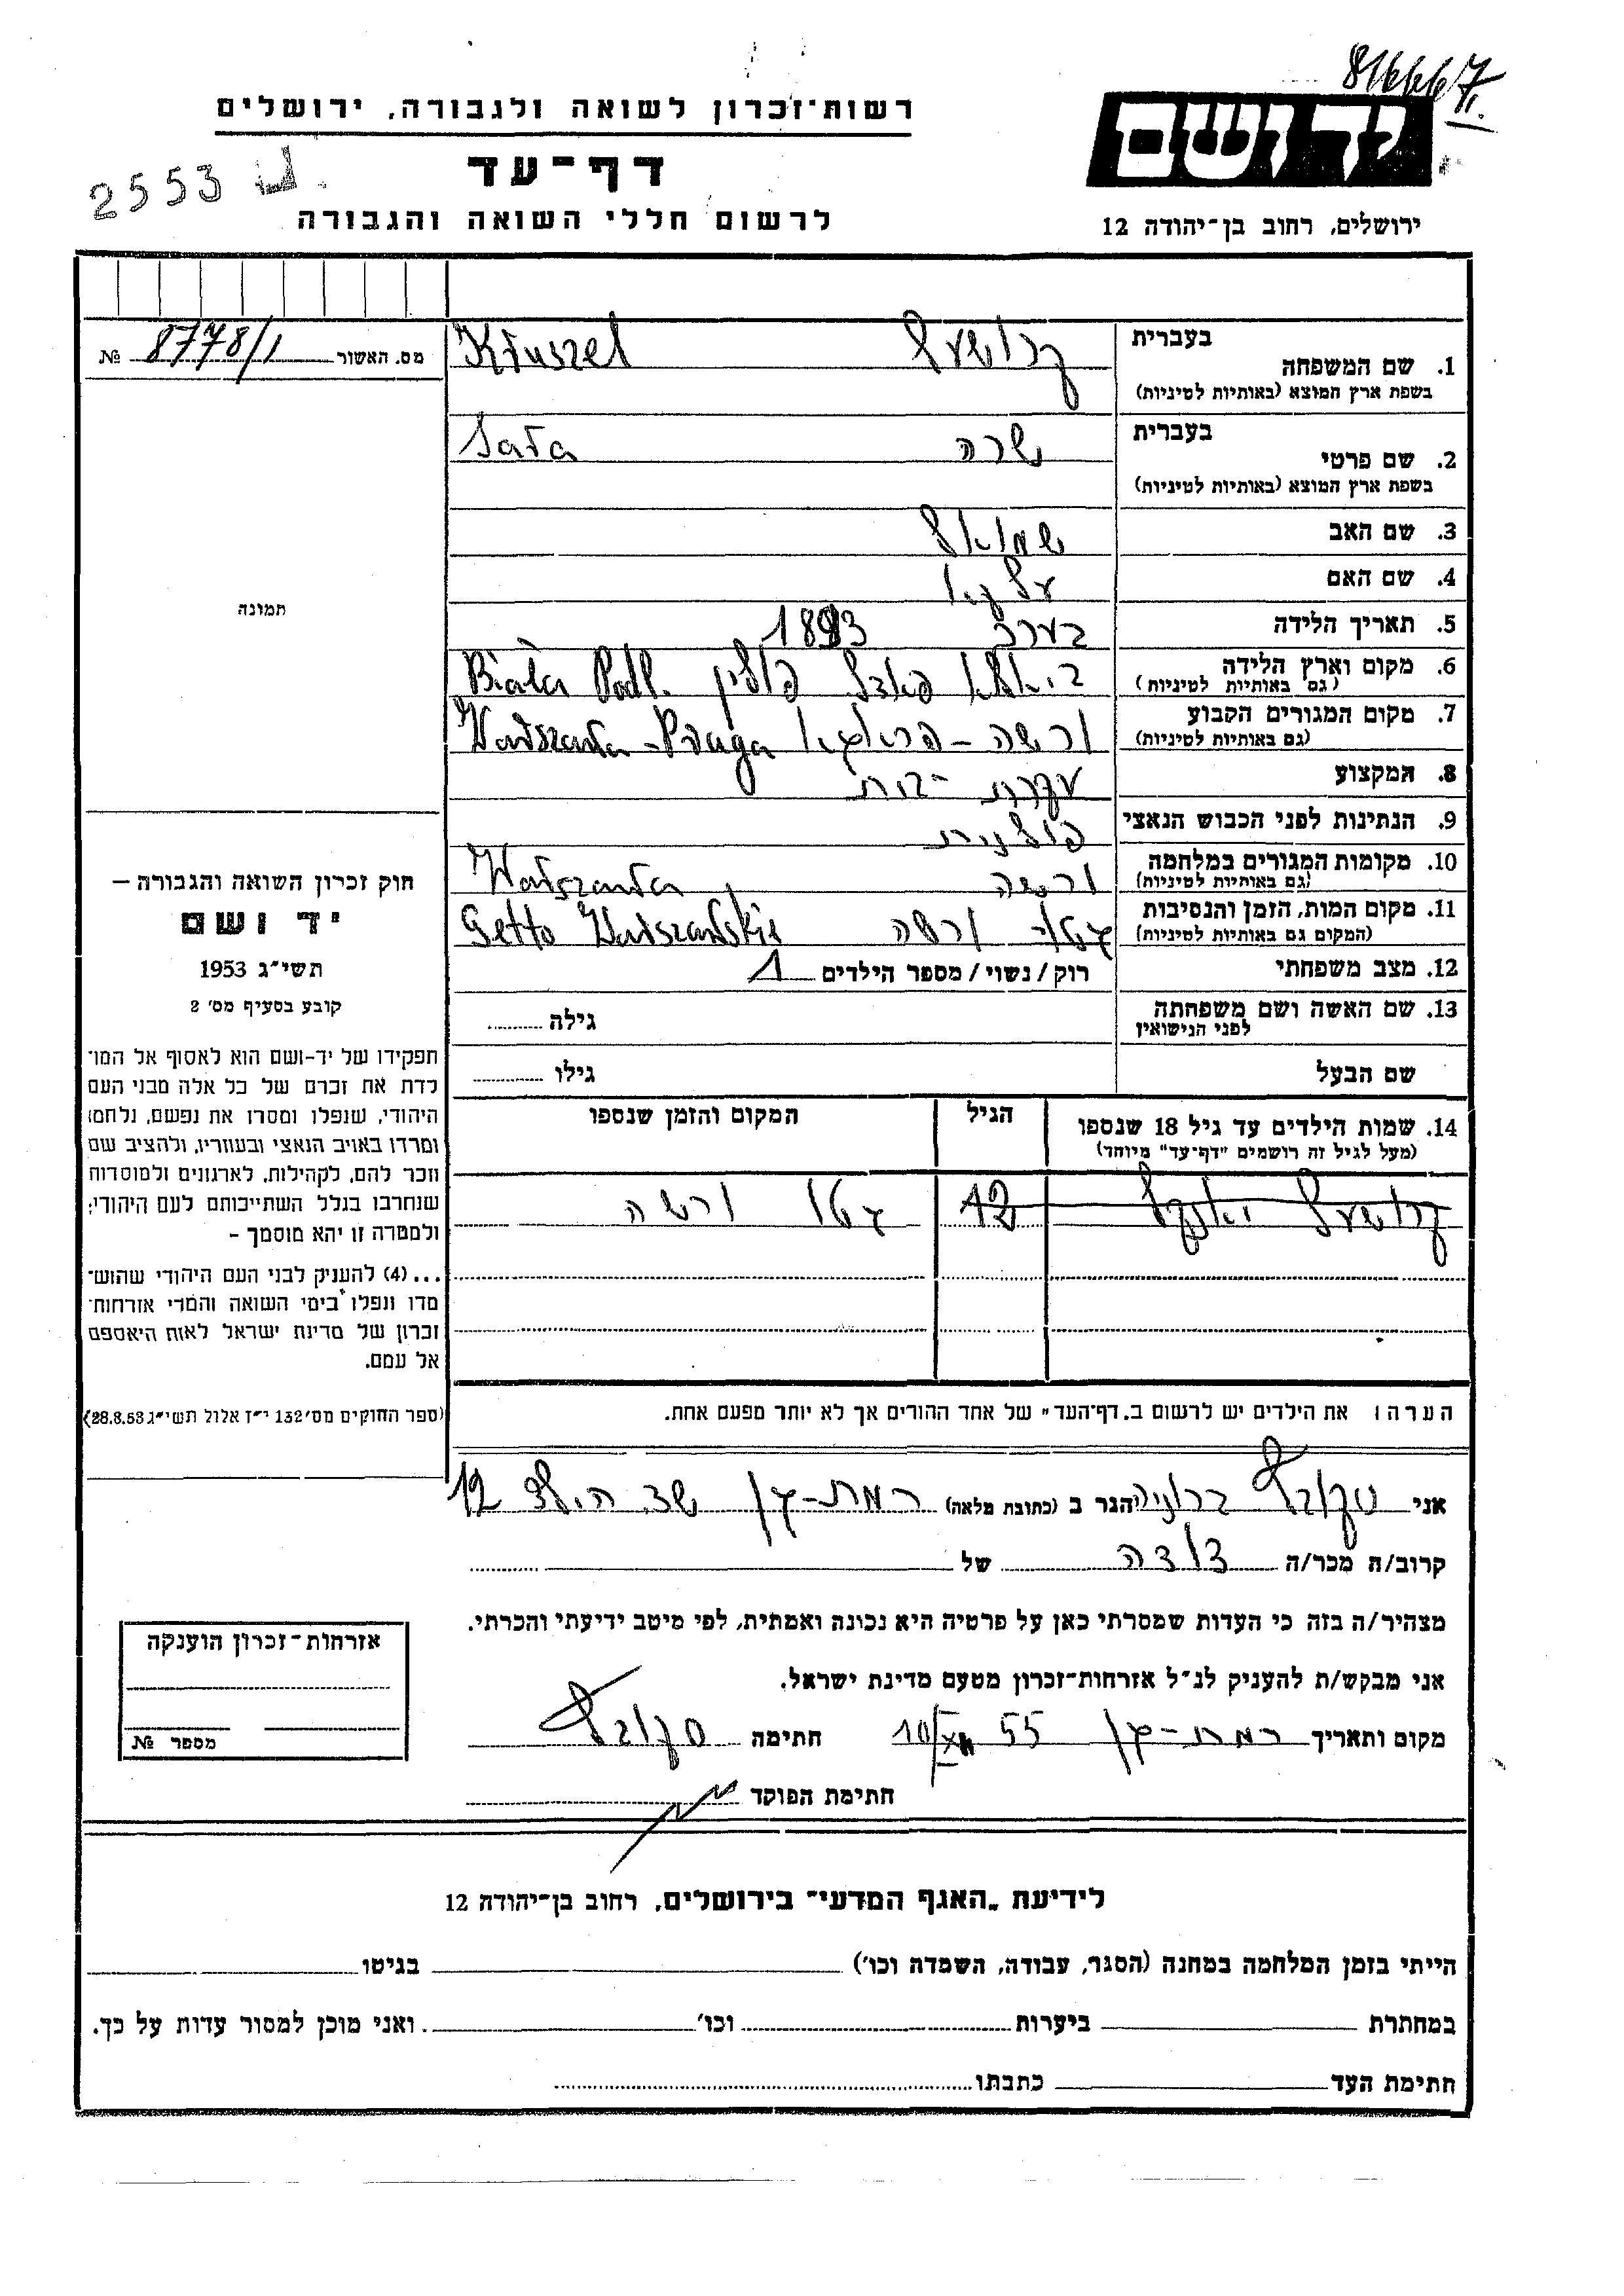 816667
יד ושם
ירושלים, רחוב בן-יהודה 12
רשות-זכרון לשואה ולגבורה, ירושלים
דף-עד
לרשום חללי השואה והגבורה
2553
מס. האשור 8778/1 №
תמונה
חוק זכרון השואה והגבורה —
יד ושם
תשי״ג 1953
קובע בסעיף מס׳ 2
תפקידו של יד-ושם הוא לאסוף אל המו־
לדת את זכרם של כל אלה מבני העם
היהודי, שנפלו ומסרו את נפשם, נלחמו
ומרדו באויב הנאצי ובעוזריו, ולהציב שם
וזכר להם, לקהילות, לארגונים ולמוסדות
שנחרבו בגלל השתייכותם לעם היהודי;
ולמטרה זו יהא מוסמך -
...(4) להעניק לבני העם היהודי שהוש־
מדו ונפלו בימי השואה והמרי אזרחות־
זכרון של מדינת ישראל לאות היאספם
אל עמם.
(ספר החוקים מס׳ 132 י״ז אלול תשי״ג 28.8.53)
בעברית
1. שם המשפחה קרושעל Kruszel
בשפת ארץ המוצא (באותיות לטיניות)
בעברית
2. שם פרטי שרה Sara
בשפת ארץ המוצא (באותיות לטיניות)
3. שם האב שמואל
4. שם האם
5. תאריך הלידה בערך 1893
6. מקום וארץ הלידה ביאלא פאדל פולין Biała Podl.
(גם באותיות לטיניות)
7. מקום המגורים הקבוע ורשה - פראגא Warszawa-Praga
(גם באותיות לטיניות)
8. המקצוע עקרת-בית
9. הנתינות לפני הכבוש הנאצי פולנית
10. מקומות המגורים במלחמה ורשה Warszawa
(גם באותיות לטיניות)
11. מקום המות, הזמן והנסיבות גטו ורשה Getto Warszawskie
(המקום גם באותיות לטיניות)
12. מצב משפחתי רוק/נשוי/מספר הילדים 1
13. שם האשה ושם משפחתה גילה
לפני הנישואין
שם הבעל גילו
14. שמות הילדים עד גיל 18 שנספו הגיל המקום והזמן שנספו
(מעל לגיל זה רושמים "דף-עד" מיוחד)
קרושעל יאנקל 12 גטו ורשה
הערה: את הילדים יש לרשום ב„דף-העד" של אחד ההורים אך לא יותר מפעם אחת.
אני ברוניה הגר ב (כתובת מלאה) רמת-גן 12
קרוב/ה מכר/ה דודה של
מצהיר/ה בזה כי העדות שמסרתי כאן על פרטיה היא נכונה ואמתית, לפי מיטב ידיעתי והכרתי.
אני מבקש/ת להעניק לנ״ל אזרחות-זכרון מטעם מדינת ישראל.
מקום ותאריך רמת-גן 55 חתימה
חתימת הפוקד
אזרחות-זכרון הוענקה
מספר №
לידיעת „האגף המדעי" בירושלים, רחוב בן-יהודה 12
הייתי בזמן המלחמה במחנה (הסגר, עבודה, השמדה וכו׳) בגיטו
במחתרת ביערות וכו׳ ואני מוכן למסור עדות על כך.
חתימת העד כתבתו